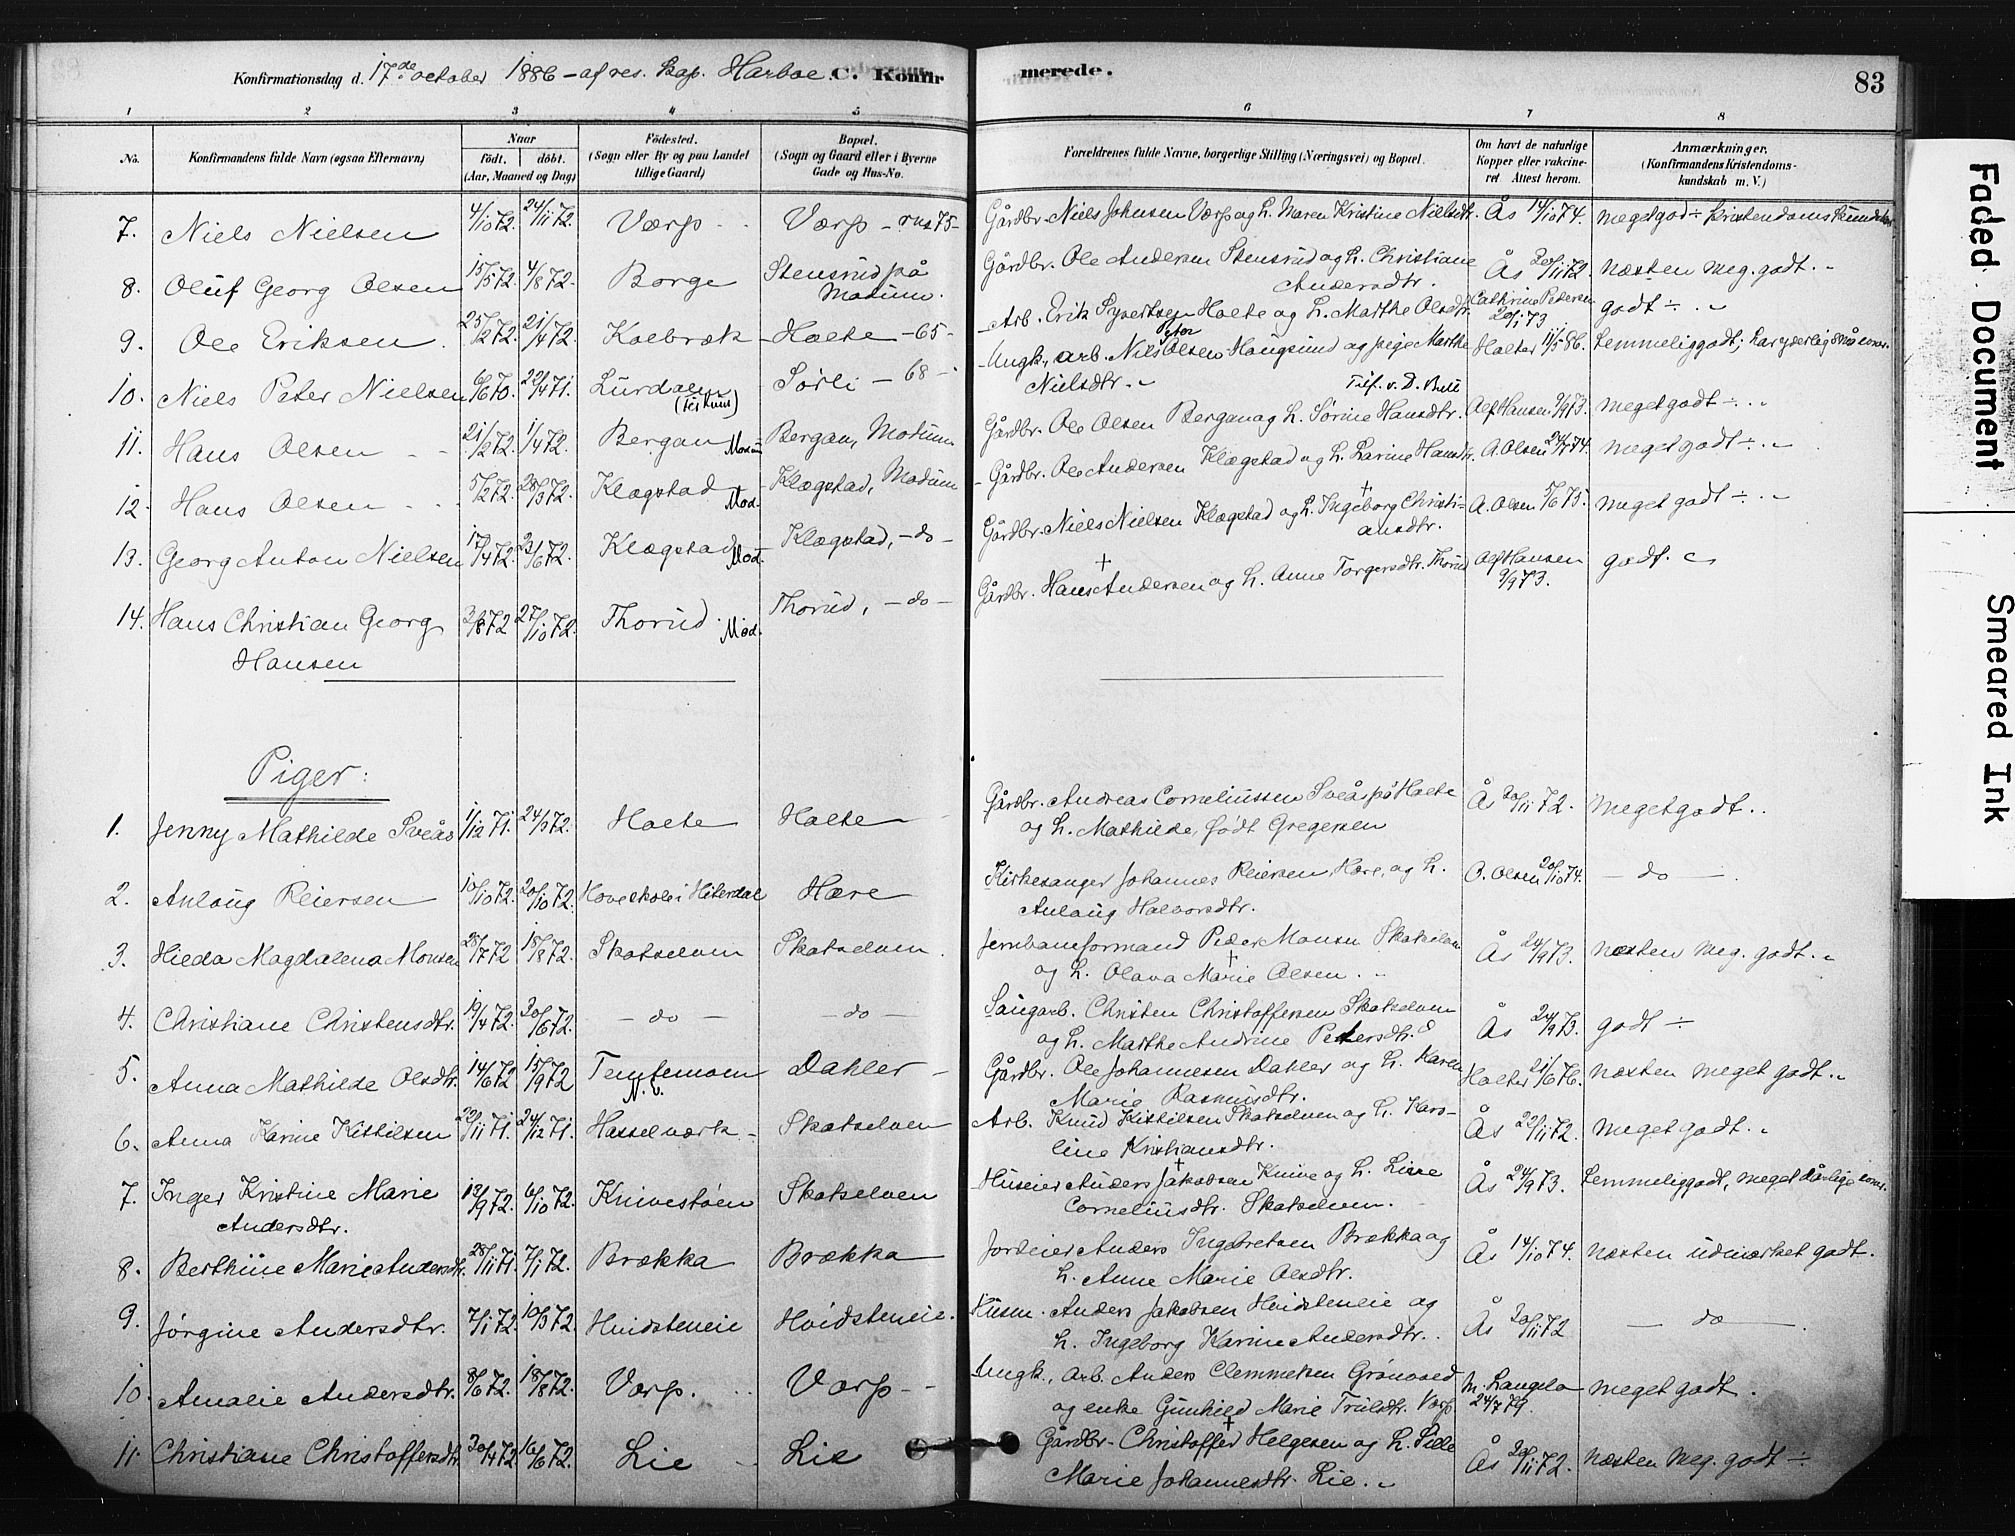 Konfirmationsdag d. 17de october 1886 - af res. kap. Harboe. C. Konfirmerede. 83
1 2 3 4 5 6 7 8
No. Konfirmandens fulde Navn (ogsaa Efternavn) Naar født. døbt. (Aar, Maaned og Dag) Fødested. (Sogn eller By og paa Landet tillige Gaard) Bopæl. (Sogn og Gaard eller i Byerne Gade og Hus-No. Forældrenes fulde Navne, borgerlige Stilling (Næringsvei) og Bopæl. Om havt de naturlige Kopper eller vakcineret Attest herom. Anmærkninger. (Konfirmandens Kristendomskundskab m. V.)
7. Niels Nielsen 4/10 72. 24/11 72. Værp Værp - rus 75 - Gårdbr. Niels Johnsen Værp og h. Maren Kristine Nielsdtr. Ås 14/10 74. meget god ÷ kristendomskundskab
8. Oluf Georg Olsen 15/5 72. 4/8 72. Borge Stensrud på Modum. Gårdbr. Ole Andersen Stensrud og h. Christiane Andersdtr. Ås 20/11 72. næsten meg. godt.
9. Ole Eriksen. 25/2 72. 21/4 72. Kolbræk Holte - 65 - Arb. Erik Syvertsen Holte og h. Marthe Olsdtr. Cathrine Petersen 20/1 73 godt ÷
10. Niels Peter Nielsen 6/6 70. 22/4 71. Lurdalen Sørli - 68 - Ungk., arb. Niels Olsen Haugsund og pige Marthe Nielsdtr. Holter 11/5 86. temmelig godt;
11. Hans Olsen 21/2 72. 1/4 72. Bergan Mod. Bergan, Modum Gårdbr. Ole Olsen Bergan og h. Sørine Hansdtr. Alf Hansen 9/9 73. meget godt ÷
12. Hans Olsen 5/2 72. 28/3 72. Klægstad Mod. Klægstad, Modum Gårdbr. Ole Andersen Klægstad og h. Larine Hansdtr. A. Olsen 24/7 74. meget godt ÷
13. Georg Anton Nielsen 17/4 72. 23/6 72. Klægstad Mod. Klægstad, - do - Gårdbr. Niels Nielsen Klægstad og h. Ingeborg † Christiansdtr. A. Olsen 5/6 75. meget godt ÷
14. Hans Christian Georg Hansen 3/8 72 27/10 72. Thorud. Mod. Thorud, - do - Gårdbr. Hans † Andersen og h. Anne Torgersdtr. Thorud Alf Hansen 9/9 73. godt.
Piger:
1. Jenny Mathilde Sveås 1/12 71. 24/3 72. Holte Holte Gårdbr. Andreas Corneliussen Sveås på Holte og h. Mathilde, født Gregersen Ås 20/11 72. meget godt.
2. Anlaug Reiersen 10/10 72. 20/10 72. Hoveskole i Hiterdal Hære Kirkesanger Johannes Reiersen Hære, og h. Anlaug Halvorsdtr. O. Olsen 20/10 74. - do -
3. Hilda Magdalena Monsen 28/7 72 18/8 72. Skotselven Skotselven. Jernbaneformand Peder Monsen Skotselven og h. Olava Marie † Olsen. Ås 24/9 73. næsten meg. godt.
4. Christiane Christensdtr. 19/4 72. 30/6 72. - do - - do - Saugarb. Christen Christoffersen Skotselven og h. Marthe Andrine Petersdtr. Ås 24/9 73. godt ÷
5. Anna Mathilde Olsdtr. 14/6 72 15/9 72 Temtemoen N. E. Dahler Gårdbr. Ole Johannesen Dahler og h. Karen Marie Rasmusdtr. Holter 21/6 76. næsten meget godt.
6. Anna Karine Kittilsen 22/11 71. 24/12 71. Hasselværk Skotselven Arb. Knud Kittilsen Skotselven og h. Karoline Kristiansdtr. Ås 22/11 72. meget godt.
7. Inger Kristine Marie Andersdtr. 13/9 72. 6/10 72. Knivestøen Skotselven Huseier Anders † Jakobsen Knive og h. Lisse Corneliusdtr. Skotselven. Ås 24/9 73. temmelig godt, meget dårlige
8. Berthine Marie Andersdtr. 28/11 71. 7/1 72. Brækka Brækka Jordeier Anders Ingebretsen Brækka og h. Anne Marie Olsdtr. Ås 14/10 74. næsten udmærket godt.
9. Jørgine Andersdtr. 7/1 72. 10/3 72. Hvidsteneie Hvidsteneie. Husm. Anders Jakobsen Hvidsteneie og h. Ingeborg Karine Andersdtr. Ås 20/11 72 - do -
10. Amalie Andersdtr. 8/6 72. 18/8 72. Værp. Værp Ungk., arb. Anders Clemmetsen Grønvold og enke Gunhild Marie Trulsdtr. Værp M. Langela 24/7 79. meget godt.
11. Christiane Christoffersdtr. 20/4 72. 16/6 72. Lie Lie Gårdbr. Christoffer † Helgesen og h. Sille Marie Johannesdtr. Lie. Ås 20/11 72. næsten meg. godt ÷
Faded Document
Smeared Ink